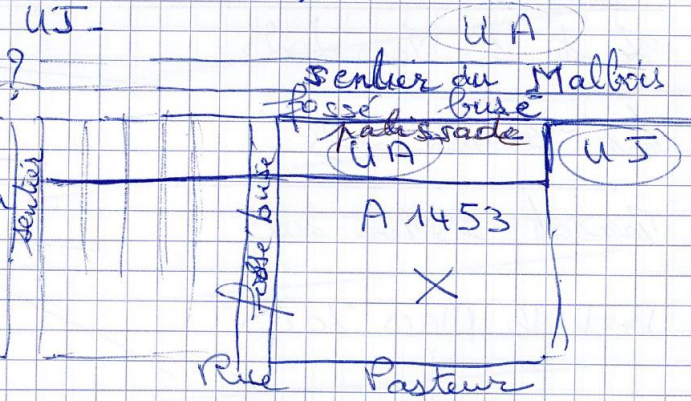 UJ-
UA
?
sentier du Malbois
fossé busé
palissade
UA
UJ
sentier
fossé busé
A 1453
X
Rue Pasteur